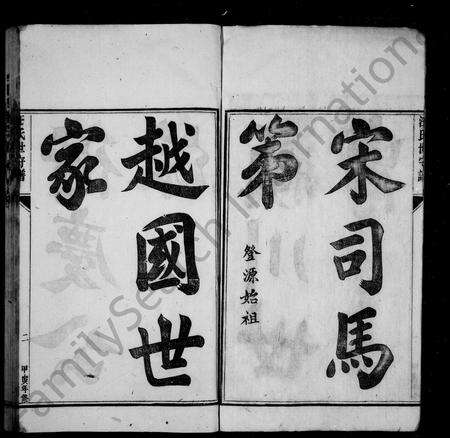 宋司馬
第
登源始祖
越國世
家
汪氏世守譜
二
甲寅年
FamilySearch International